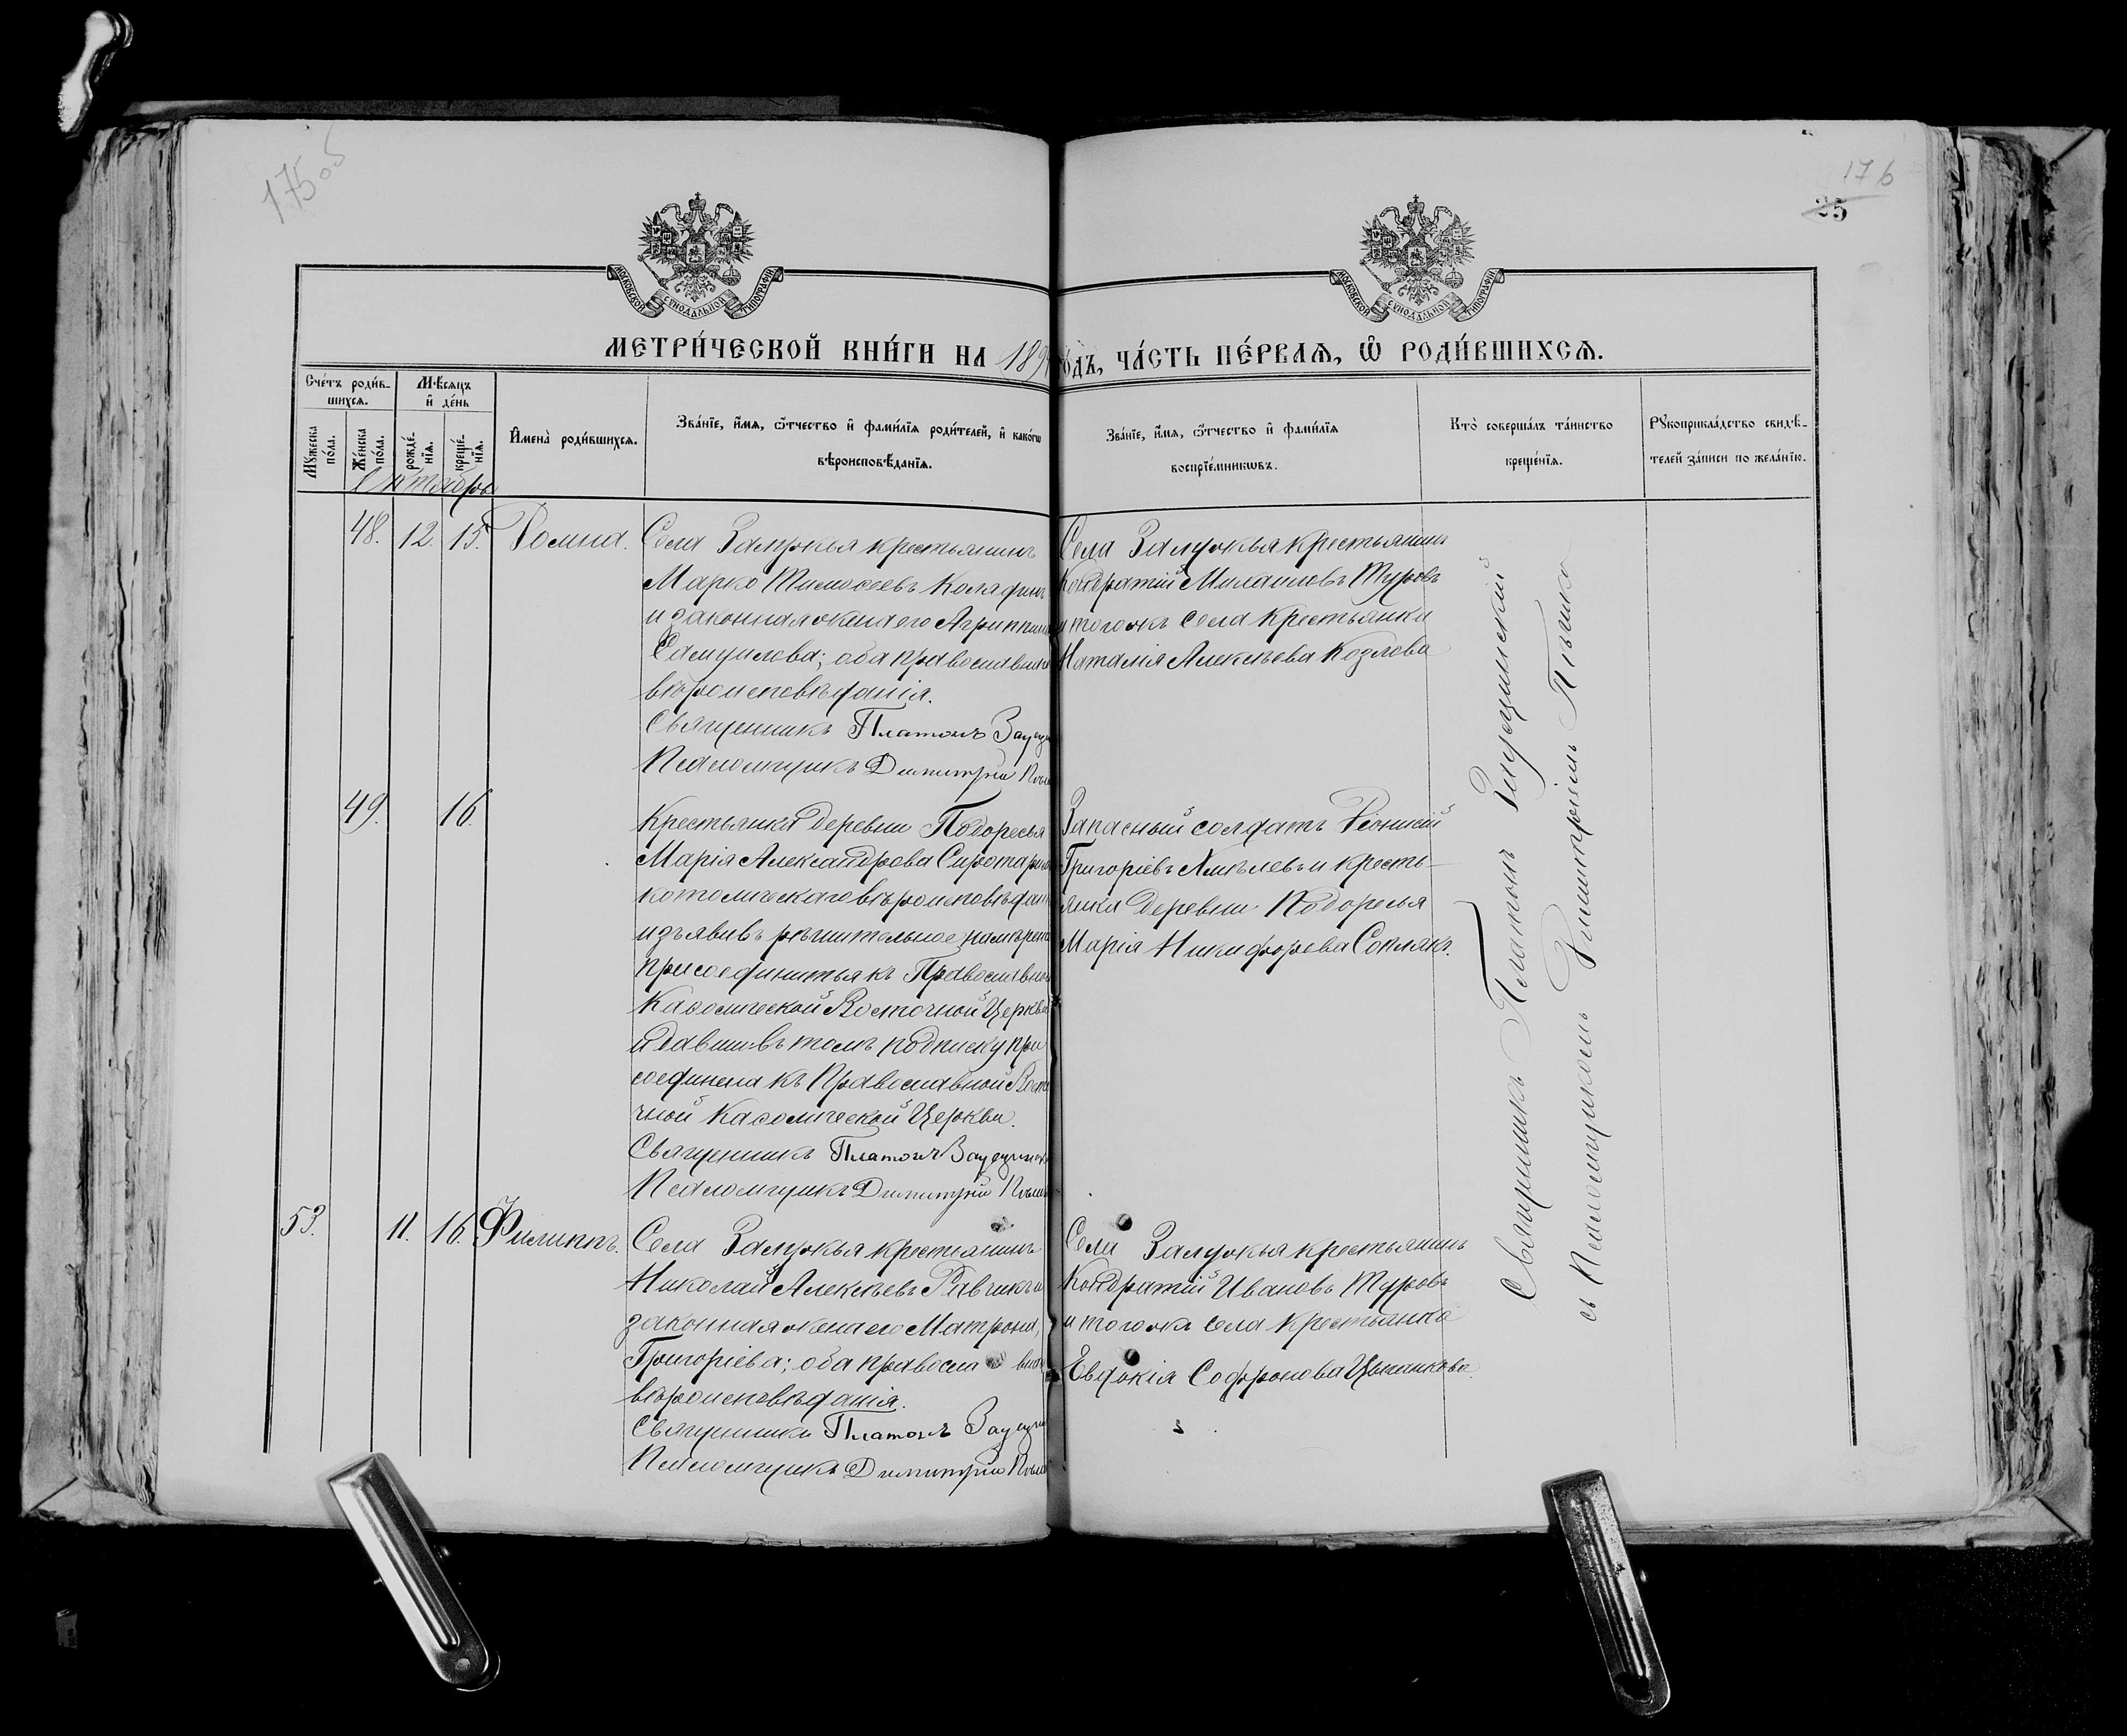 175 об
176
25
МОСКОВСКОЙ СѴНОДАЛЬНОЙ ТИПОГРАФІИ
МОСКОВСКОЙ СѴНОДАЛЬНОЙ ТИПОГРАФІИ
МЕТРИ́ЧЕСКОЙ КНИ́ГИ НА 189
ГО́ДЪ, ЧА́СТЬ ПЕ́РВАѦ, Ѽ РОДИ́ВШИХСѦ.
Сче́тъ роди́в-
шихсѧ.
Мꙋ́жеска по́ла.
Же́нска по́ла.
Мѣ́сѧцъ
и҆ де́нь
рожде́-
нїѧ.
креще́-
нїѧ.
И҆мена̀ роди́вшихсѧ.
Зва́нїе, и҆́мѧ, ѻ҆́тчество и҆ фами́лїѧ роди́телей, и҆ како́гѡ
вѣроисповѣ́данїѧ.
Зва́нїе, и҆́мѧ, ѻ҆́тчество и҆ фами́лїѧ
воспрїе́мникѡвъ.
Кто̀ соверша́лъ та́инство
креще́нїѧ.
Рꙋкоприкла́дство свидѣ́-
телей за́писи по жела́нїю.
Сентябрь
48. 12. 15.
Села Залужья крестьянинъ
Марко Тимоѳеевъ
и законная жена его Агриппина
Самуилова; оба православнаго
вѣроисповѣданія.
Священникъ Платонъ
Псаломщикъ Димитрій
Села Залужья крестьянинъ
Кондратій Михаиловъ Туровъ
и того жъ села крестьянка
Наталія Алексѣева Козлова
49. 16.
Крестьянка деревни Подоресья
Марія Александрова
католическаго вѣроисповѣданія
изъявивъ рѣшительное намѣреніе
присоединиться къ Православной
Каѳолической Восточной Церкви
и давши въ томъ подписку при
соединена къ Православной Восто
чной Каѳолической Церкви.
Священникъ Платонъ
Псаломщикъ Димитрій
Запасный солдатъ
Григоріевъ и кресть-
янка деревни Подоресья
Марія Никифорова
53. 11. 16. Филиппъ.
Села Залужья крестьянинъ
Николай Алексѣевъ Равчикъ и
законная жена его Матрона
Григоріева; оба православнаго
вѣроисповѣданія.
Священникъ Платонъ
Псаломщикъ Димитрій
Села Залужья крестьянинъ
Кондратій Ивановъ Туровъ
и того жъ села крестьянка
Евдокія Софронова
Священникъ Платонъ
съ Псаломщикомъ Димитріемъ